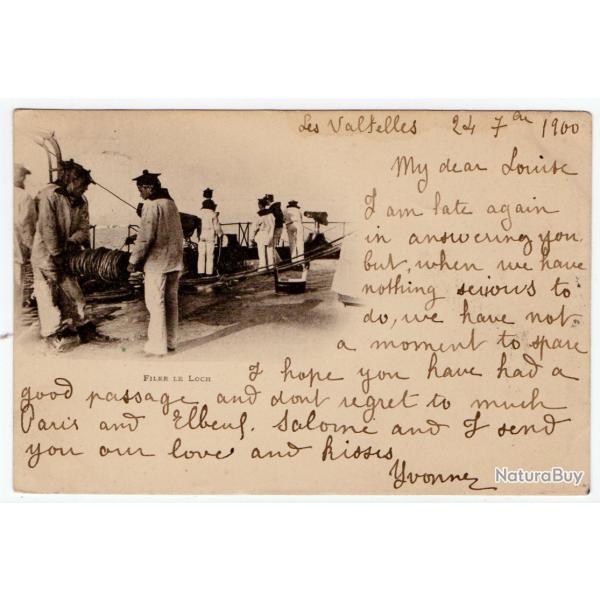 Les Valtelles 24 7bre 1900
My dear Louise
I am late again
in answering you,
but, when we have
nothing serious to
do, we have not
a moment to spare
FILER LE LOCH
I hope you have had a
good passage and dont regret to much
Paris and Elbeuf. Salome and I send
you our love and kisses
Yvonne
NaturaBuy